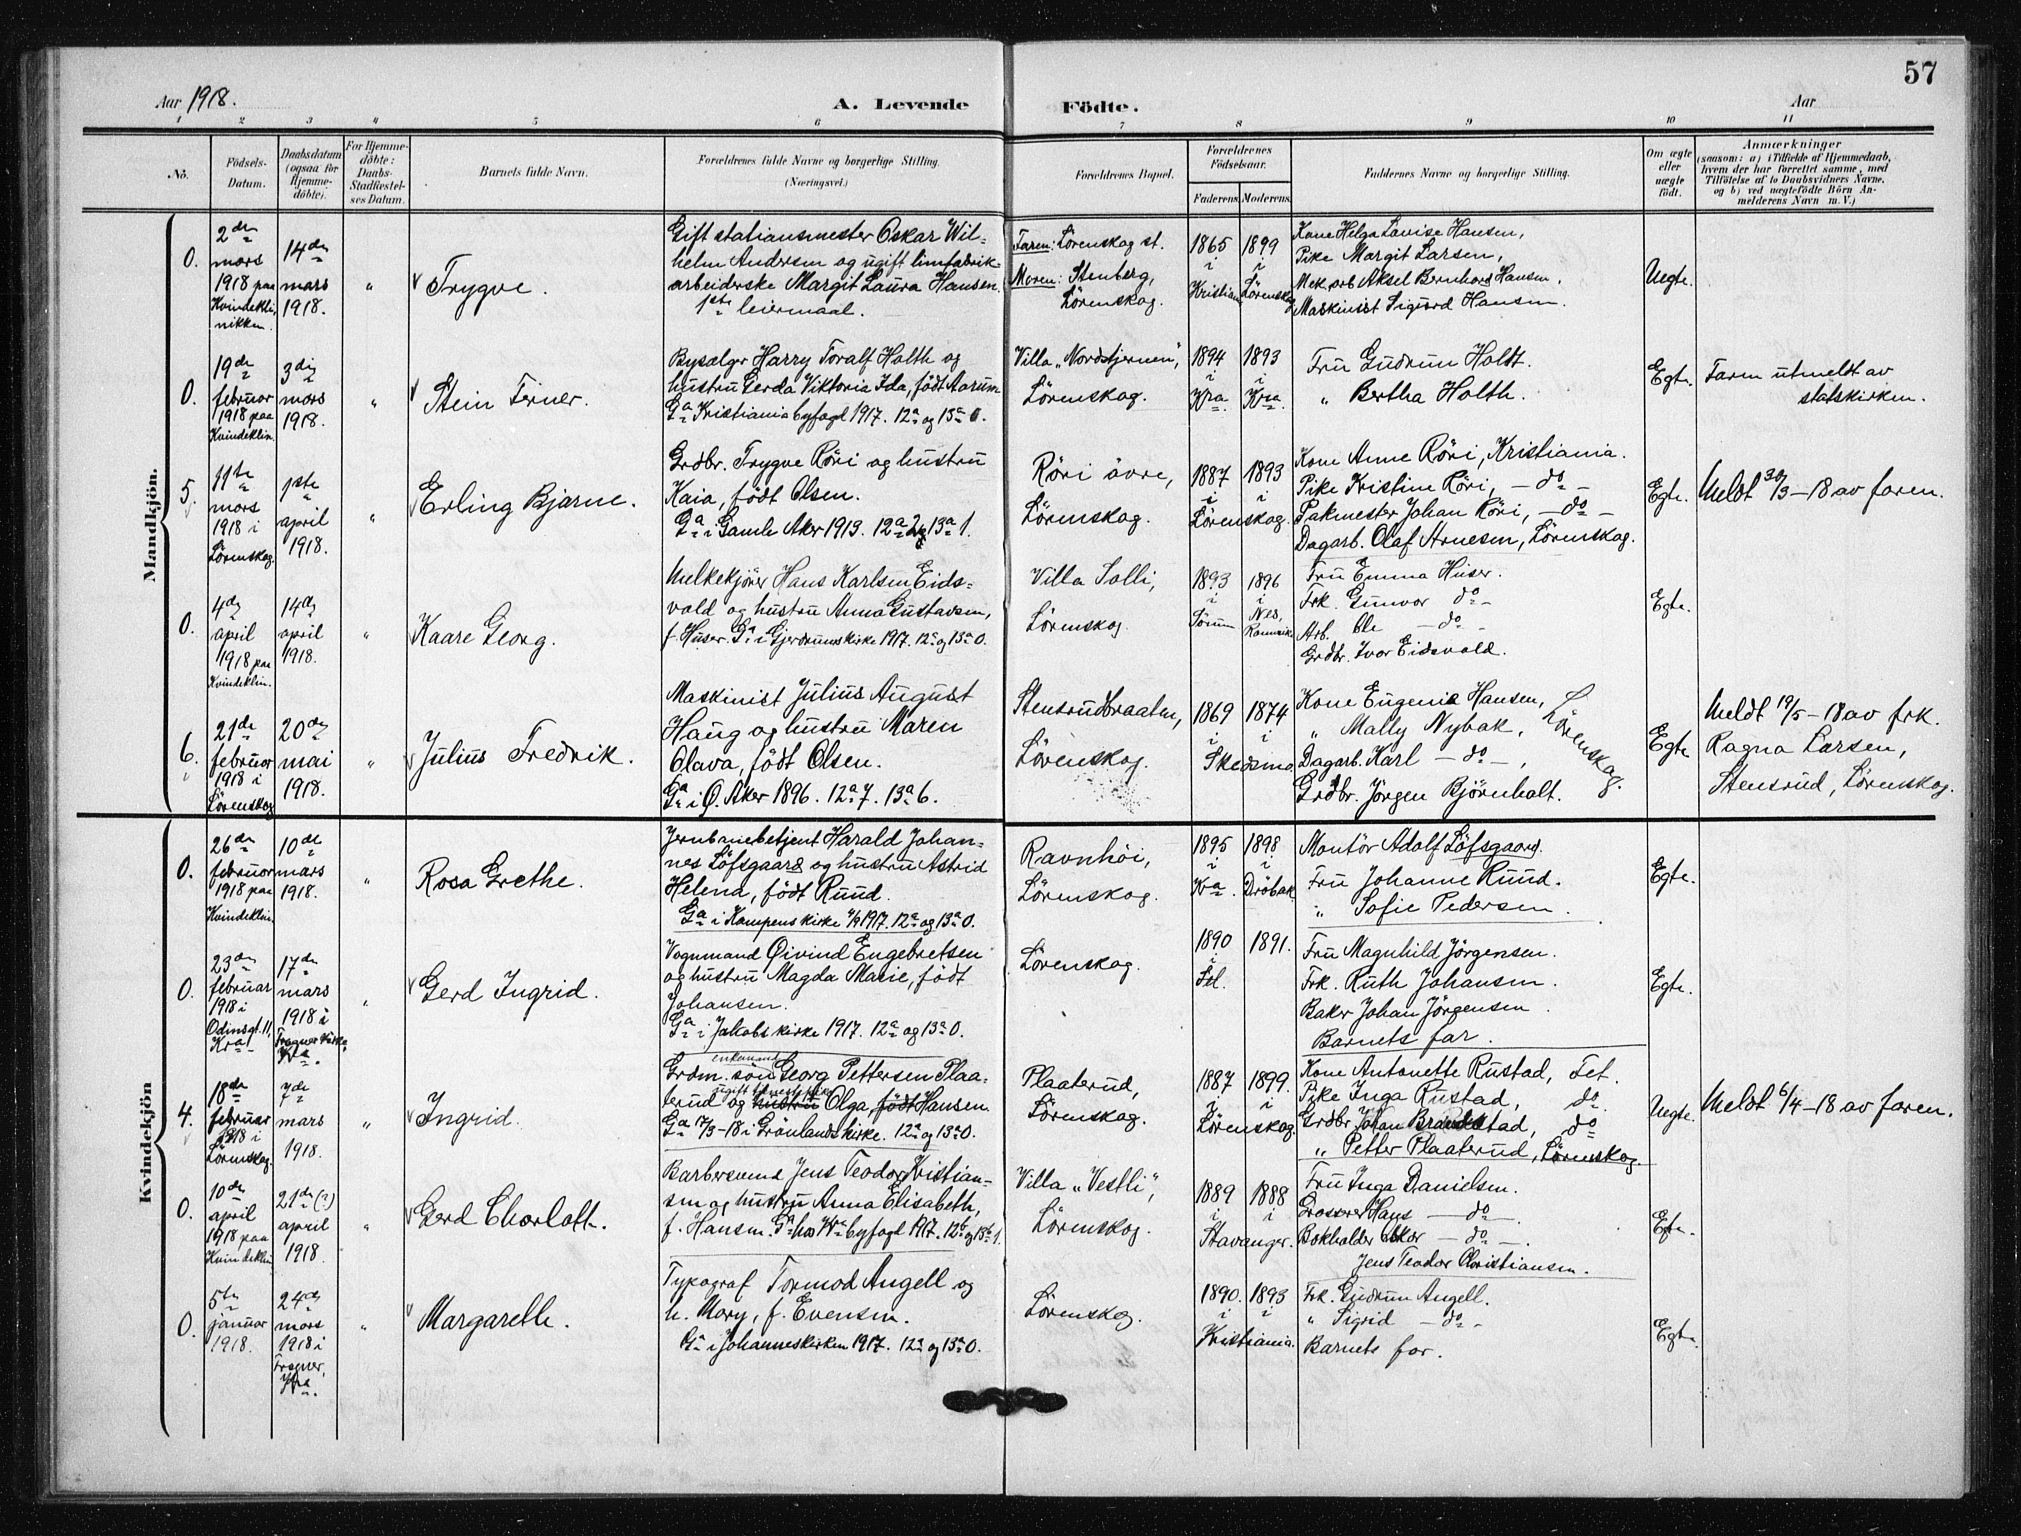 57
Aar 1918.
A. Levende Födte.
Aar
1 2 3 4 5 6 7 8 9 10 11
No.
Födsels-Datum.
Daabsdatum (ogsaa for Hjemme-döbte).
For Hjemme-döbte: Daabs-Stadfestel-ses Datum.
Barnets fulde Navn.
Forældrenes fulde Navne og borgerlige Stilling.
(Næringsvei.)
Forældrenes Bopæl.
Forældrenes Födselsaar.
Faderens. Moderens.
Faddernes Navne og borgerlige Stilling.
Om ægte eller uægte födt.
Anmærkninger
(saasom: a) i Tilfælde af Hjemmedaab,
hvem der har forrettet samme, med
Tilföielse af to Daabsvidners Navne,
og b) ved uægtefödte Börn An-
melderens Navn m. V.)
Mandkjön.
0.
2den mars 1918 paa Kvindekli-nikken.
14de mars 1918.
"
Trygve.
Gift stationsmester Oskar Wil-
helm Andersen og ugift limfabrik-
arbeiderske Margit Laura Hansen.
1ste leiermaal.
Faren: Lörenskog st.
Moren: Stenberg,
Lörenskog.
1865 i Kristiania
1899 i Lörenskog
Kone Helga Lovise Hansen,
Pike Margit Larsen,
Mek. arb. Aksel Bernhard Hansen,
Maskinist Sigurd Hansen.
Uegte.
0.
19de februar 1918 paa Kvindeklin.
3die mars 1918.
"
Stein Ferner.
Bysælger Harry Toralf Holth og
hustru Gerda Viktoria Ida, født Aarum
Ga i Kristiania byfogd 1917. 12a og 13a 0.
Villa "Nordstjernen",
Lörenskog.
1894 i Kra.
1893 i Kra.
Fru Gudrun Holdt.
" Bertha Holth.
Egte.
Faren utmeldt av
statskirken.
5.
11te mars 1918 i Lörenskog.
1ste april 1918.
"
Erling Bjarne.
Grdbr. Trygve Röri og hustru
Kaia, født Olsen.
Ga i Gamle Aker 1913. 12a 2 og 13a 1.
Röri övre,
Lörenskog.
1887 1893
i i
Lörenskog.
Kone Anne Röri, Kristiania.
Pike Kristine Röri, — do —
Pakmester Johan Röri, — do —
Dagarb. Olaf Arnesen, Lörenskog.
Egte.
Meldt 30/3–18 av faren.
0.
4de april 1918 paa Kvindeklin.
14de april 1918.
"
Kaare Georg.
Melkekjörer Hans Karlsen Eids-
vold og hustru Anna Gustavsen,
f. Huser. Ga i Gjerdrums kirke 1917. 12a og 13a 0.
Villa Solli,
Lörenskog.
1893 i Sörum
1896 i Nes, Romerike
Fru Emma Huser.
Frk. Gunvor do —
Arb. Ole — do —
Grdbr. Ivar Eidsvold.
Egte.
6.
21de februar 1918 i Lörenskog
20de mai 1918.
"
Julius Fredrik.
Maskinist Julius August
Haug og hustru Maren
Olava, født Olsen.
Ga i Ø. Aker 1896. 12a 7. 13a 6.
Stensrudbraaten,
Lörenskog.
1869 1874
i i
Skedsmo.
Kone Eugenie Hansen,
" Mally Nybak,
Dagarb. Karl — do —,
Grdbr. Jörgen Björnholt.
Lörenskog.
Egte
Meldt 19/5–18 av frk.
Ragna Larsen,
Stensrud, Lörenskog.
Kvindekjön
0.
26de februar 1918 paa Kvindeklin.
10de mars 1918.
"
Rosa Grethe.
Jernbanebetjent Harald Johan-
nes Löfsgaard og hustru Astrid
Helena, født Ruud.
Ga i Kampens kirke 1917. 12a og 13a 0.
Ravnhöi,
Lörenskog.
1895 i Kra.
1898 i Dröbak.
Montör Adolf Löfsgaard.
Fru Johanne Ruud.
" Sofie Pedersen.
Egte.
0.
23de februar 1918 i Odinsgt. 11, Kra
17de mars 1918 i Frogner kirke Kra.
"
Gerd Ingrid.
Vognmand Öivind Engebretsen
og hustru Magda Marie, født
Johansen.
Ga i Jakobs kirke 1917. 12a og 13a 0.
Lörenskog.
1890 1891.
Fet.
Fru Magnhild Jörgensen.
Frk. Ruth Johansen.
Baker Johan Jörgensen
Barnets far.
Egte.
4.
18de februar 1918 i Lörenskog.
7de mars 1918.
"
Ingrid.
enkemand
Grdm. sön Georg Pettersen Plaa-
terud og hustru Olga, født Hansen.
Ga 17/3–18 i Grönlands kirke. 12a og 13a 0.
Plaaterud,
Lörenskog.
1887 1899.
i i
Lörenskog.
Kone Antonette Rustad, Fet.
Pike Inga Rustad, do.
Grdbr. Johan Brandstad, do
" Petter Plaaterud, Lörenskog.
Uegte.
Meldt 6/4–18 av faren.
0.
10de april 1918 paa Kvindeklin
21de (?) april 1918.
"
Gerd Charlott.
Barbersvend Jens Teodor Kristian-
sen og hustru Anna Elisabeth,
f. Hansen. Ga hos Kra byfogd 1917. 12b og 13b 1.
Villa "Vestli",
Lörenskog.
1889 1888
i i
Stavanger.
Fru Inga Danielsen.
Grosserer Hans — do —
Bokholder Oskar — do —.
Jens Teodor Christiansen.
Egte.
0.
5te januar 1918.
24de mars 1918 i Frogner, Kra.
"
Margarethe.
Typograf Tormod Angell og
h. Mary, f. Evensen.
Ga i Johanneskirken 1917. 12a og 13a 0.
Lörenskog.
1890. 1893
i i
Kristiania.
Frk. Gudrun Angell.
" Sigrid — do —
Barnets far.
Egte.